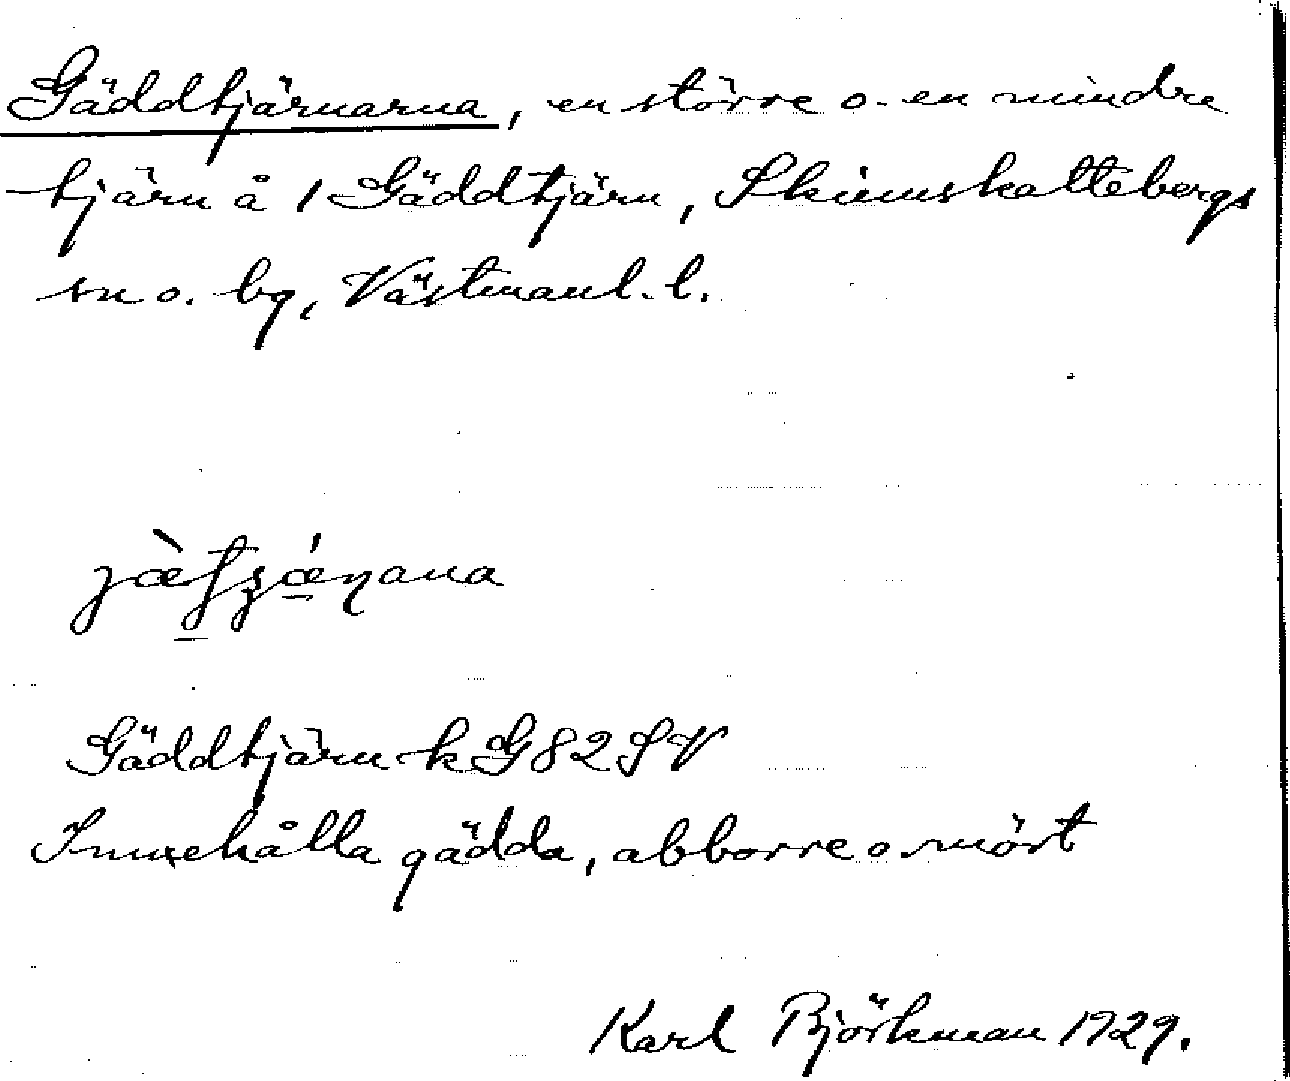 Gäddtjärnarna, en större o. en mindre
tjärn å 1 Gäddtjärn, Skinnskattebergs
sn o. bg, Västmanl. l.
Gäddtjärn k G82SV
Innehålla gädda, abborre o. mört
Karl Björkman 1929.